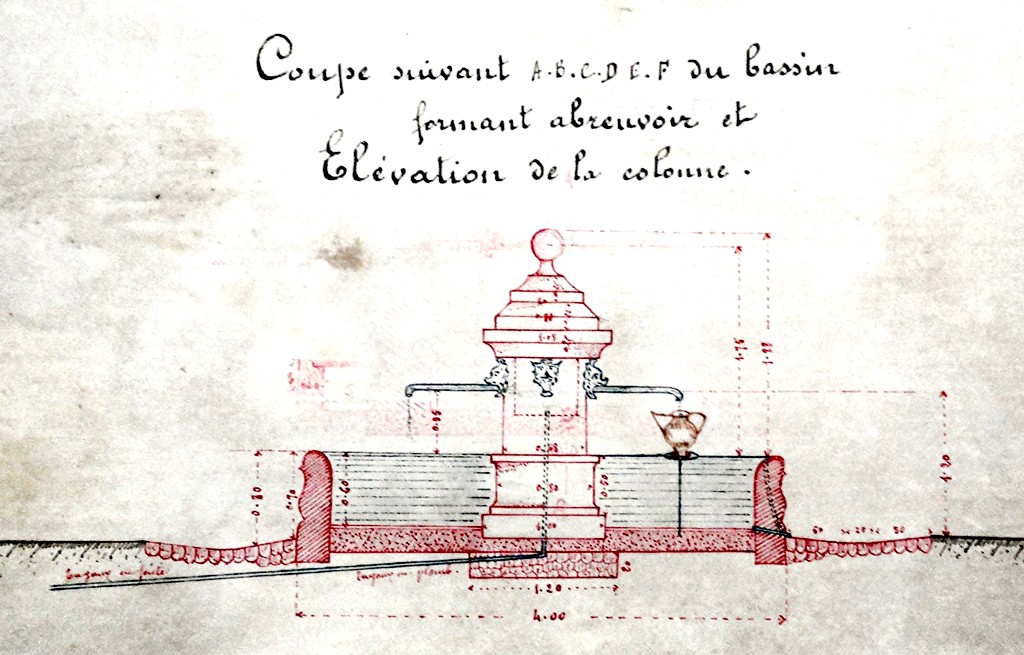 Coupe suivant A.B.C.D E.F du bassin
formant abreuvoir et
Elévation de la colonne.
1.05
1.75
1.88
0.55
1.20
0.80
0.70
0.60
0.50
0.50
60
20
50
Tuyaux en fonte
Tuyaux en plomb.
1.20
4.00